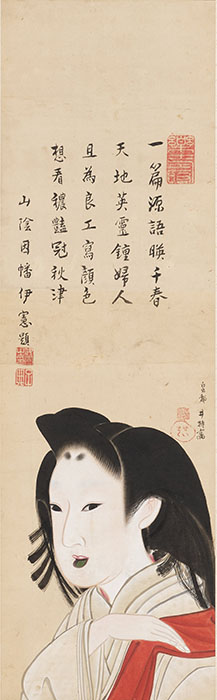 一篇源語暎千春
天地英靈鍾婦人
且為良工寫顏色
想看穠豔冠秋津
山陰因幡伊憲題
皇都 井特寫